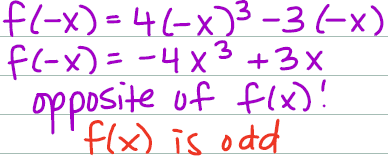 f(-x) = 4(-x)³ - 3(-x)
f(-x) = -4x³ + 3x
opposite of f(x)!
f(x) is odd